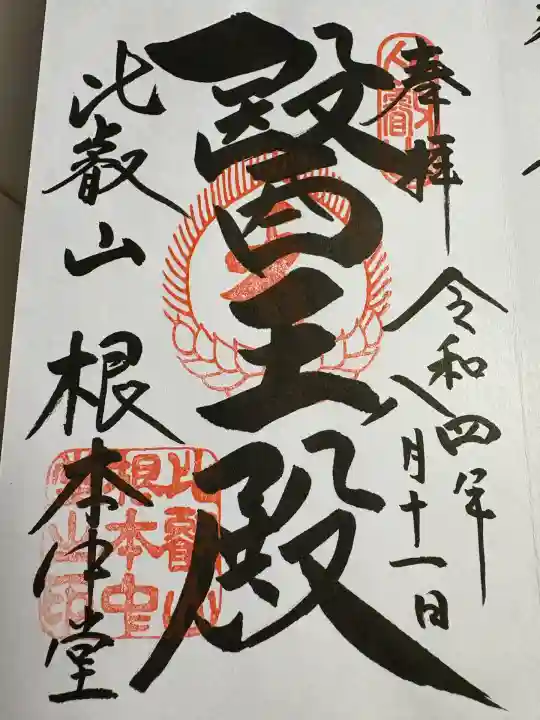 奉拝
令和四年
八月十一日
醫王殿
比叡山 根本中堂
比叡山
根本中
堂之印